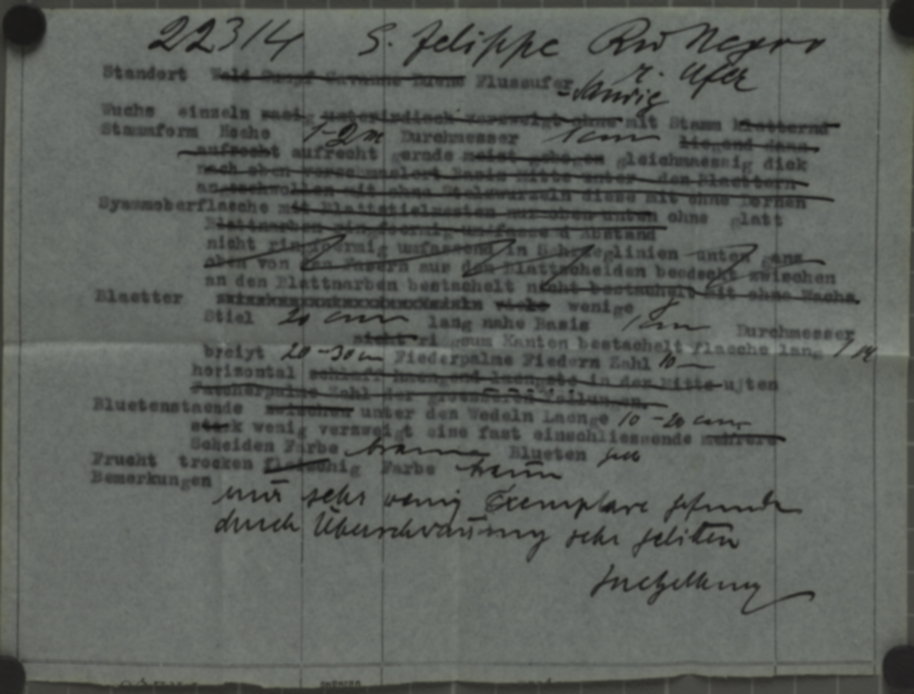 22314 S. Felippe Rio Negro
r. Ufer
Standort Wald Sumpf Savanne Duene Flussufer
Wuchs einzeln rasig unterirdisch verzweigt ohne mit Stamm kletternd
Stammform Hoehe 1-2 m Durchmesser 1 cm liegend dann
aufrecht aufrecht gerade meist gebogen gleichmaessig dick
nach oben verschmaelert Basis Mitte unter den Blaettern
angeschwollen mit ohne Stelzwurzeln diese mit ohne Dornen
Stammoberflaeche mit Blattstielresten nur oben unten ohne glatt
Blattnarben ringfoermig umfassend Abstand
nicht ringfoermig umfassend in Schraeglinien unten ganz
oben von den Fasern aus den Blattscheiden bedeckt zwischen
an den Blattnarben bestachelt nicht bestachelt mit ohne Wachs
Blaetter viele wenige 8
Stiel 20 cm lang nahe Basis 1 cm Durchmesser
nicht ri gsum Kanten bestachelt flaeche lang 1 m
breiyt 20-30 cm Fiederpalme Fiedern Zahl 10
horizontal schlaff haengend laengste in der Mitte ujten
Faecherpalme Zahl der groesseren Teilungen
Bluetenstaende zwischen unter den Wedeln Laenge 10-20 cm
stark wenig verzweigt eine fast einschliessende mehrere
Scheiden Farbe braun Blueten
Frucht trocken fleischig Farbe braun
Bemerkungen
nur sehr wenig Exemplare gefunden
durch Überschwämung sehr geliten